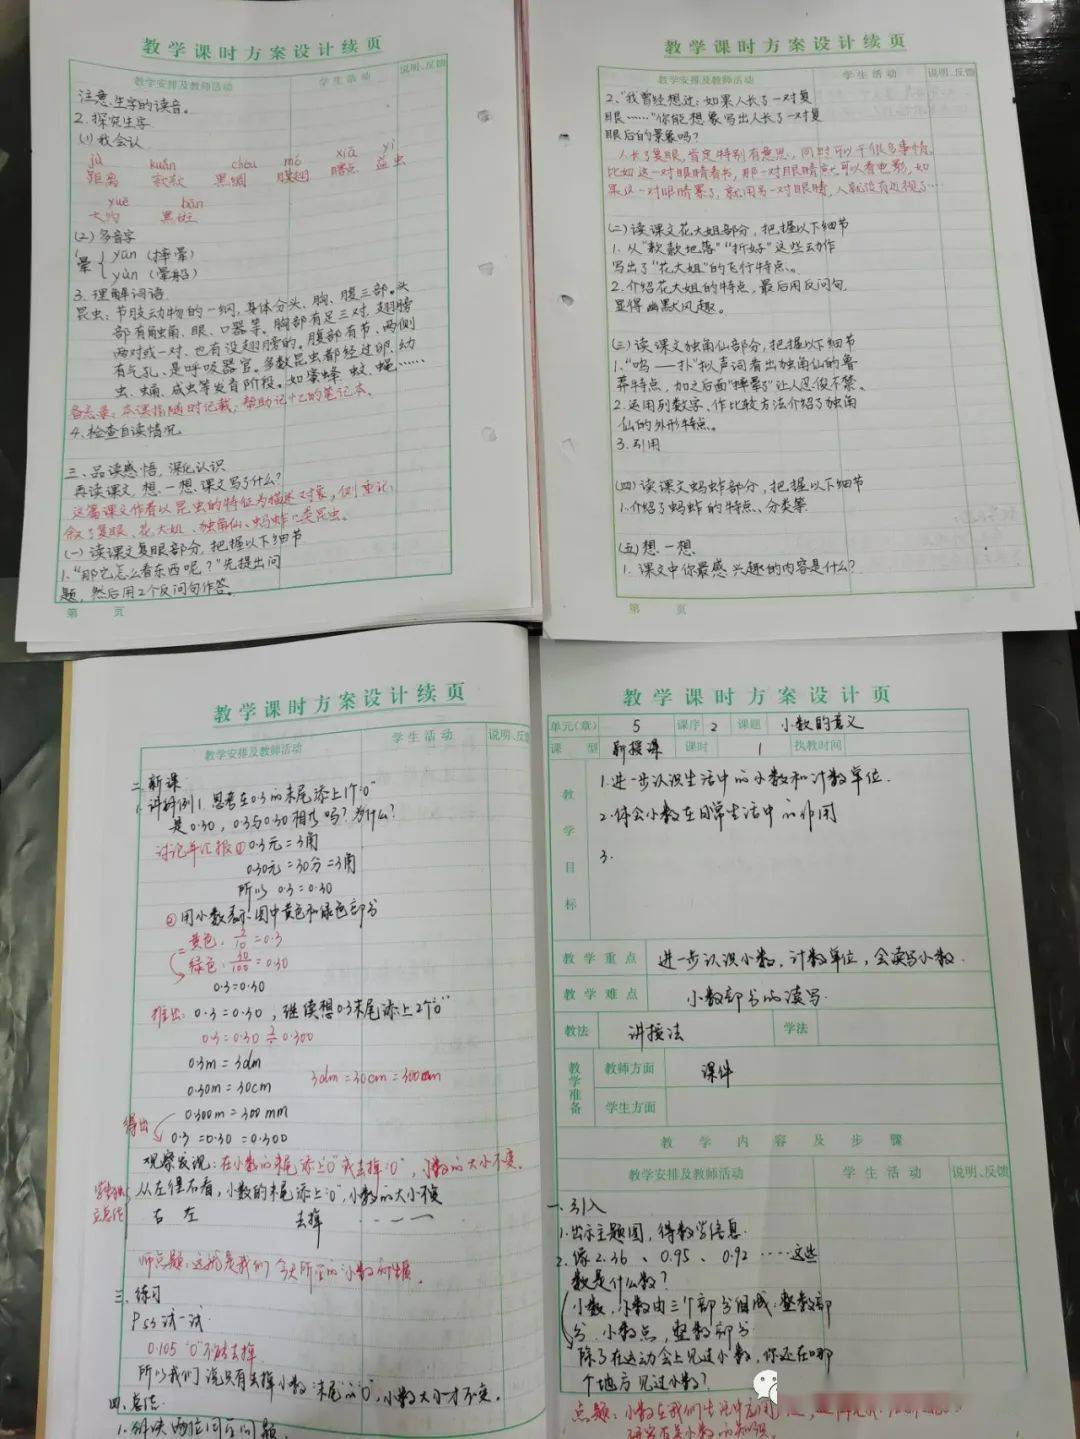 教学课时方案设计续页
教学安排及教师活动 学生活动 说明、反馈
注意生字的读音。
2.探究生字
(1)我会认
jù kuǎn chóu mó xiā yì
距离 款款 黑绸 膜翅 瞎点 益虫
yuē bān
大约 黑斑
(2)多音字
晕{yūn(摔晕)
yùn(晕船)
3.理解词语
昆虫:节肢动物的一纲,身体分头、胸、腹三部。头
部有触角、眼、口器等。胸部有足三对,翅膀
两对或一对,也有没翅膀的。腹部有节,两侧
有气孔、是呼吸器官。多数昆虫都经过卵、幼
虫、蛹、成虫等发育阶段。如蜜蜂、蚊、蝇……
备忘录:本课指随时记载,帮助记忆的笔记本。
4.检查自读情况
三、品读感悟,深化认识
再读课文,想一想,课文写了什么?
这篇课文作者以昆虫的特征为描述对象,侧重记
叙了复眼、花大姐、独角仙、蚂蚱 类昆虫。
(一)读课文复眼部分,把握以下细节
1.“那它怎么看东西呢?”先提出问
题,然后用2个反问句作答。
第 页
教学课时方案设计续页
教学安排及教师活动 学生活动 说明、反馈
2.“我曾经想过:如果人长了一对复
眼……”你能想象写出人长了一对复
眼后的景象吗?
人长了复眼,肯定特别有意思,同时可以干很多事情,
比如这一对眼睛看书,那一对眼睛 可以看电影,如
果这一对眼睛累了,就用另一对眼睛,人就没有近视了…
(二)读课文花大姐部分,把握以下细节
1.从“款款地落”“折好”这些动作
写出了“花大姐”的飞行特点。
2.介绍花大姐的特点,最后用反问句,
显得幽默风趣。
(三)读课文独角仙部分,把握以下细节
1.“呜——扑”拟声词看出独角仙的鲁
莽特点,加之后面“摔晕了”让人忍俊不禁。
2.运用列数字、作比较方法介绍了独角
仙的外形特点。
3.引用
(四)读课文蚂蚱部分,把握以下细节
1.介绍了蚂蚱的特点、分类等
(五)想一想
1.课文中你最感兴趣的内容是什么?
第 页
教学课时方案设计续页
教学安排及教师活动 学生活动 说明、反馈
二、新课
1.讲解例1 思考在0.3的末尾添上1个“0”
是0.30,0.3与0.30相等吗?为什么?
讨论并汇报①0.3元=3角
0.30元=30分=3角
所以 0.3=0.30
②用小数表示图中黄色和绿色部分
黄色:3/10=0.3
绿色:30/100=0.30
0.3=0.30
推出:0.3=0.30,继续想0.3末尾添上2个“0”
0.3=0.30 0.300
0.3m=3dm
0.30m=30cm 3dm=30cm=300mm
0.300m=300mm
得出 0.3=0.30=0.300
观察发现:在小数的末尾添上“0”或去掉“0”,小数的大小不变。
从左往右看,小数的末尾添上“0”,小数的大小不变
右 左 去掉
师点题:这就是我们今天所学的小数的性质。
三、练习
P53试一试
0.105 “0”不能去掉
所以我们说只有去掉小数末尾的“0”,小数大小才不变。
四、总结
教学课时方案设计页
单元(章) 5 课序 2 课题 小数的意义
课型 新授课 课时 1 执教时间
教学目标
1.进一步认识生活中的小数和计数单位.
2.体会小数在日常生活中的作用
3.
教学重点 进一步认识小数,计数单位,会读写小数.
教学难点 小数部分的读写.
教法 讲授法 学法
教学准备 教师方面 课件
学生方面
教学内容及步骤
教学安排及教师活动 学生活动 说明、反馈
一、引入
1.出示主题图,得数学信息.
2.像2.36、0.95、0.92……这些
数是什么数?
小数,小数由三个部分组成:整数部
分、小数点,整数部分
除了在运动会上见过小数,你还在哪
个地方见过小数?
点题:小数在我们生活中应用